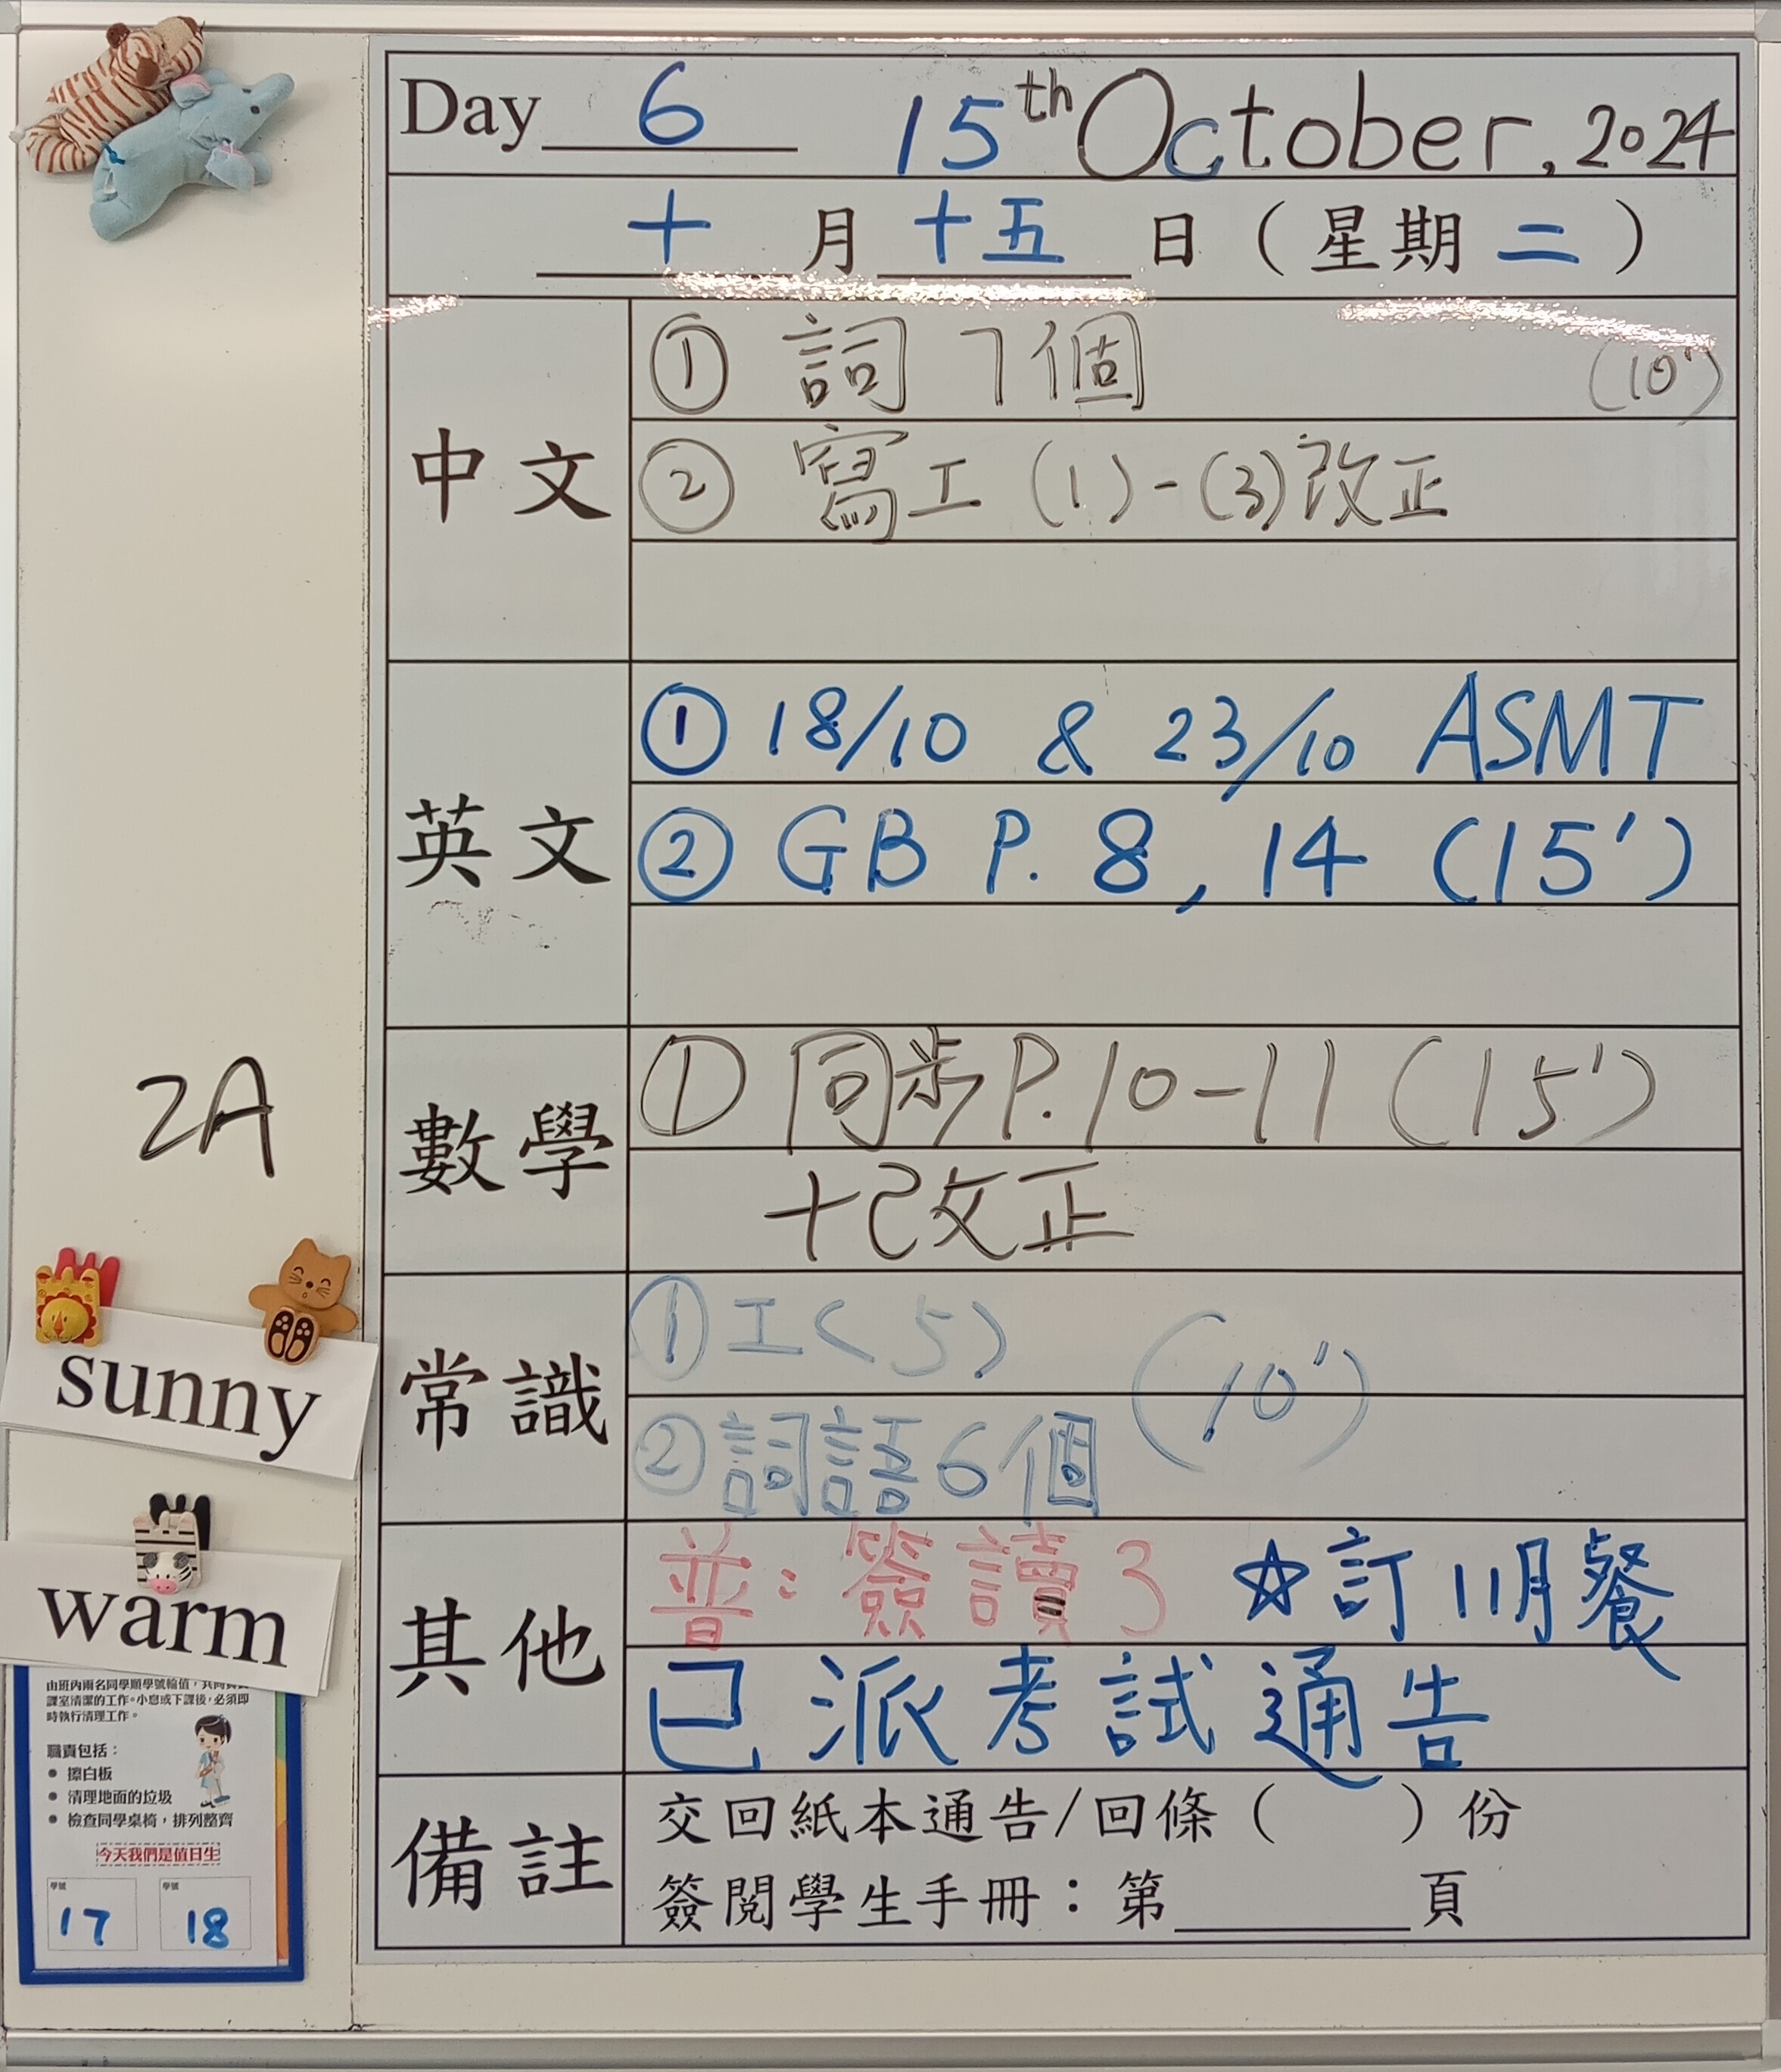 Day 6 15th October, 2024
十 月 十五 日（星期 二）
中文
① 詞 7 個 (10')
② 寫工 (1) - (3) 改正
英文
① 18/10 & 23/10 ASMT
② GB P. 8, 14 (15')
數學
① 同步 P.10-11 (15')
+改正
常識
① 工(5) (10')
② 詞語6個
其他
普：簽讀 3 ☆訂 11月餐
已派考試通告
備註
交回紙本通告/回條（ ）份
簽閱學生手冊：第______頁
2A
sunny
warm
由班內兩名同學順學號輪值，
課室清潔的工作。小息或下課後，必須即
時執行清理工作。
職責包括：
● 擦白板
● 清理地面的垃圾
● 檢查同學桌椅，排列整齊
今天我們是值日生
學號 學號
17 18